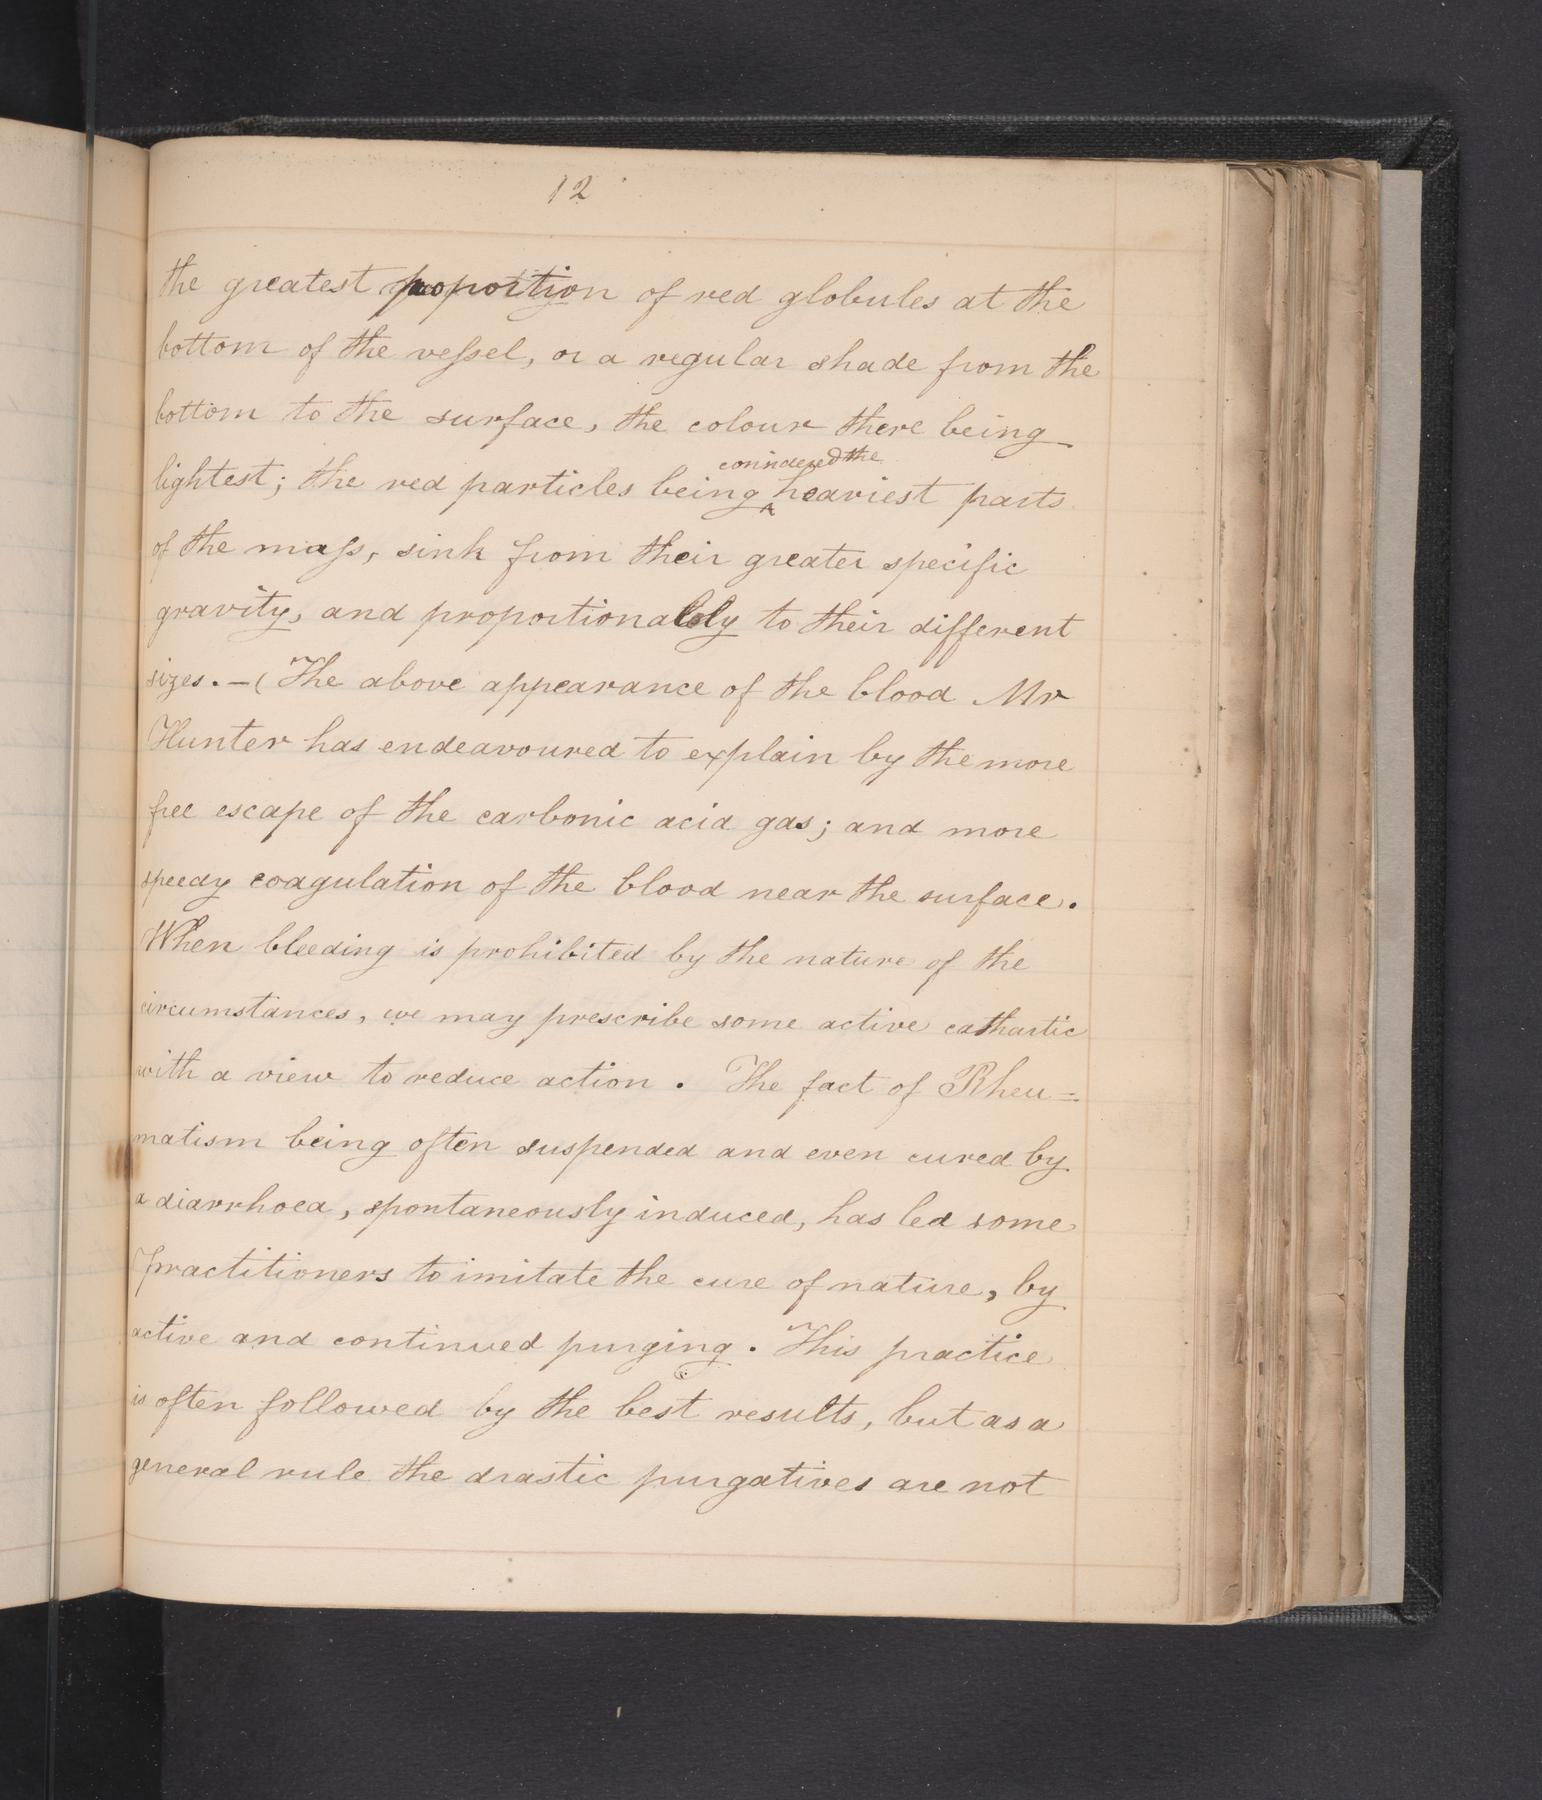 12
the greatest proportion of red globules at the
bottom of the vessel, or a regular shade from the
bottom to the surface, the colour there being
considered the
lightest; the red particles being ^ heaviest parts
of the mass, sink from their greater specific
gravity, and proportionably to their different
sizes. —( The above appearance of the blood Mr
Hunter has endeavoured to explain by the more
free escape of the carbonic acid gas; and more
speedy coagulation of the blood near the surface.
When bleeding is prohibited by the nature of the
circumstances, we may prescribe some active cathartic
with a view to reduce action. The fact of Rheu=
matism being often suspended and even cured by
a diarrhoea, spontaneously induced, has led some
practitioners to imitate the cure of nature, by
active and continued purging. This practice
is often followed by the best results, but as a
general rule the drastic purgatives are not